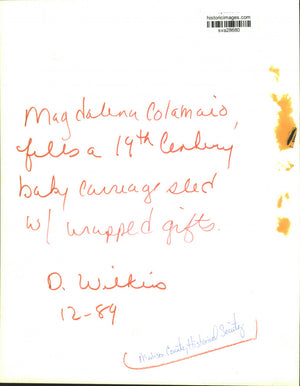 historicimages.com
sva28680
Magdalena Colamaio,
fills a 19th Century
baby carriage sled
w/ wrapped gifts.
D. Wilkins
12-89
Madison County Historical Society